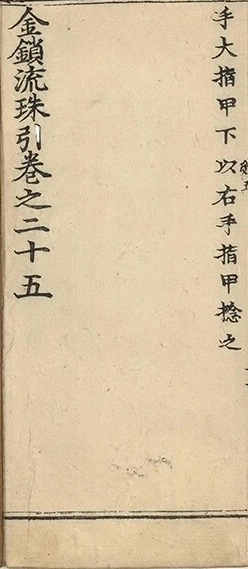 手大指甲下以右手指甲捻之
金鎖流珠引卷之二十五